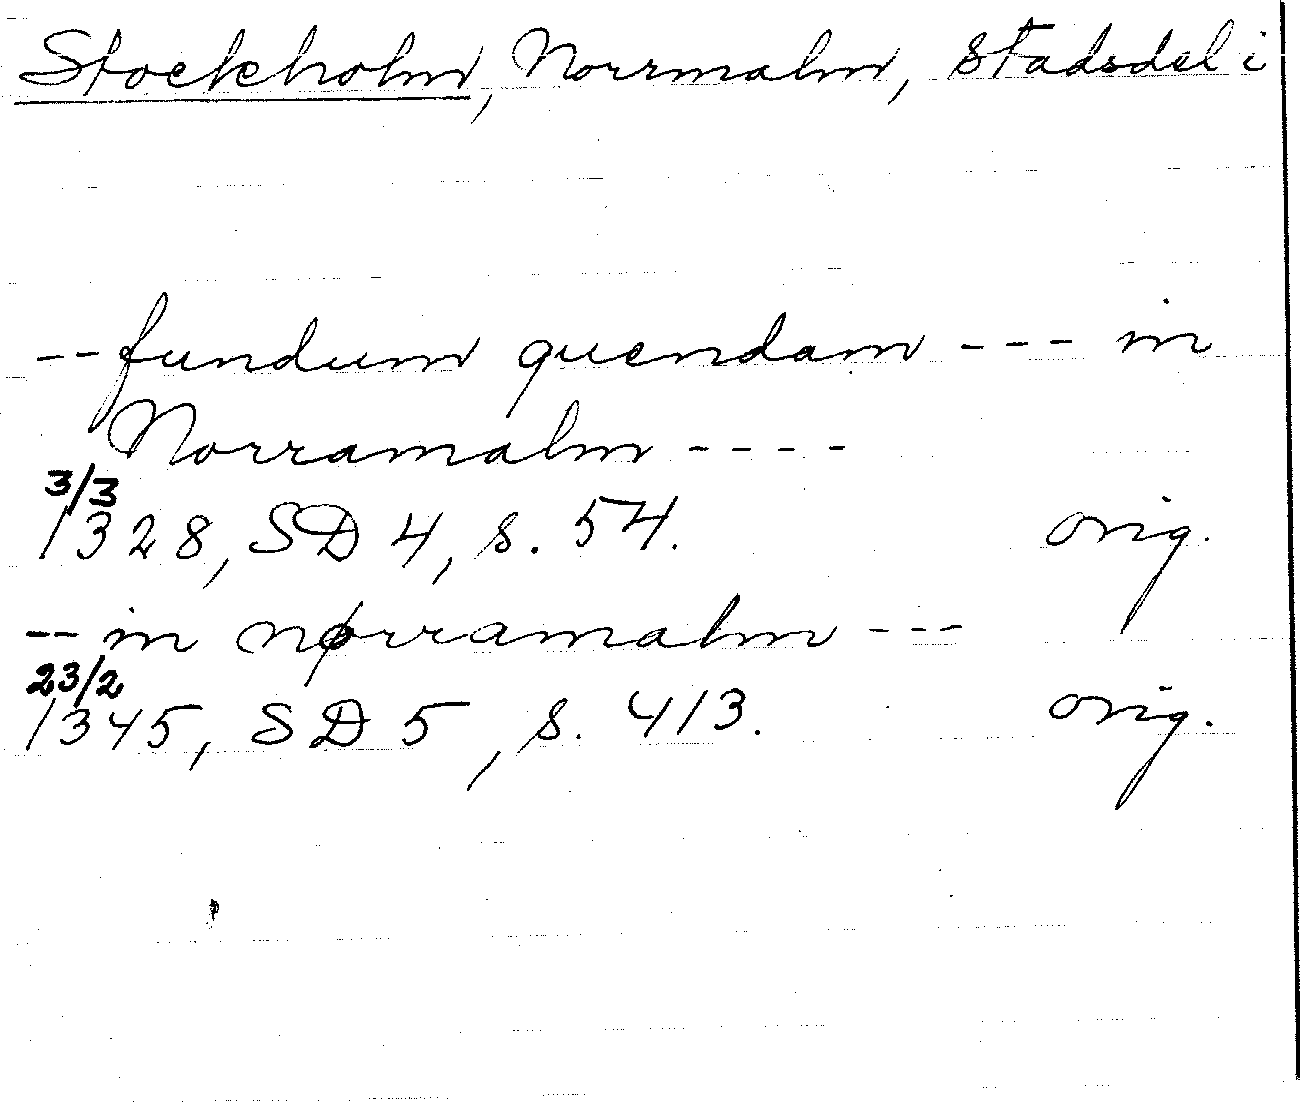 Stockholm, Norrmalm, stadsdel i
-- fundum quendam --- in
Norramalm ----
3/3
1328, SD 4, s. 54. orig.
-- in nørramalm ---
23/2
1345, SD 5, s. 413. orig.